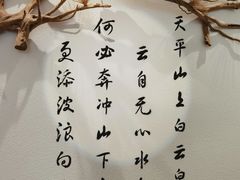 天平山上白云白
云自无心水
何必奔冲山下
更添波浪向